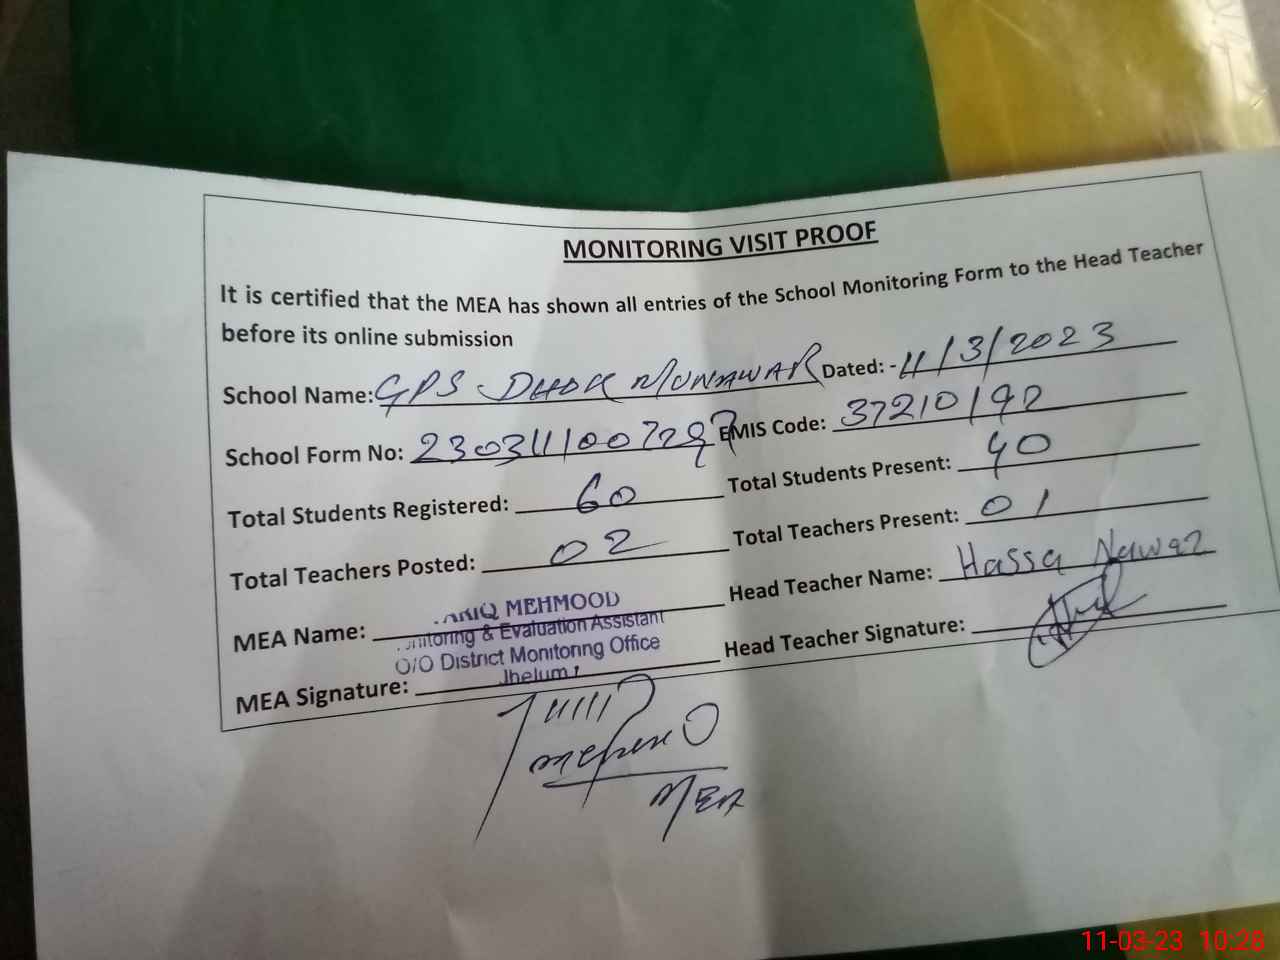 MONITORING VISIT PROOF
It is certified that the MEA has shown all entries of the School Monitoring Form to the Head Teacher
before its online submission
School Name: GPS DHOK MUNAWAR Dated: - 11/3/2023
School Form No: EMIS Code: 37210192
Total Students Registered: 60 Total Students Present: 40
Total Teachers Posted: 02 Total Teachers Present: 01
MEA Name: MEHMOOD Head Teacher Name: Hassa Nawaz
& Evaluation Assistant
O/O District Monitoring Office
Jhelum
MEA Signature: Head Teacher Signature:
MEA
11-03-23 10:28